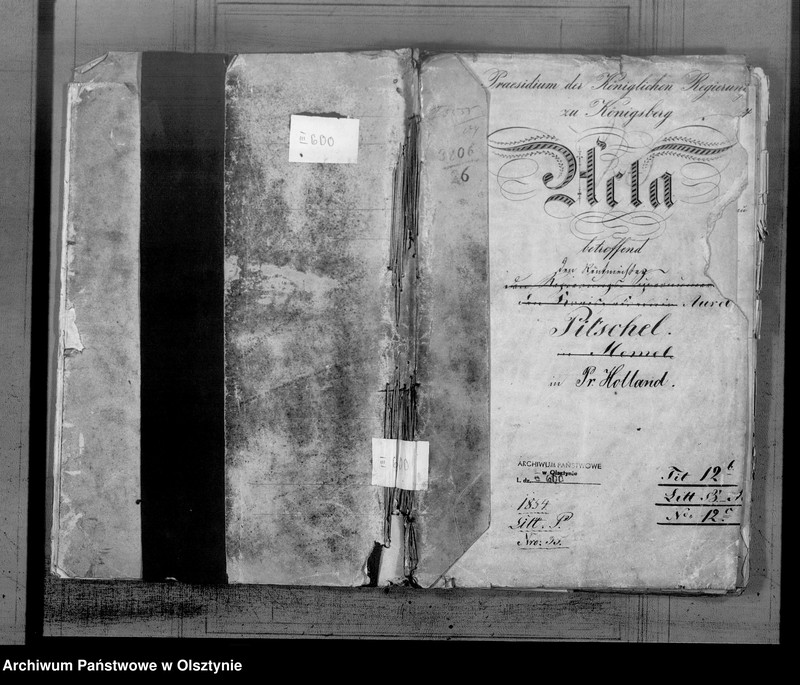 III 600
3206
26
III 600
Praesidium der Königlichen Regierung
zu Königsberg
Acta
betreffend
den Rentmeister
den Regierungs
Pitschel.
in Memel
in Pr. Holland.
ARCHIWUM PAŃSTWOWE
w Olsztynie
L. dz. 600
1834
Litt. P.
Nro: 35.
Tit 12
Litt B
No. 12
Archiwum Państwowe w Olsztynie